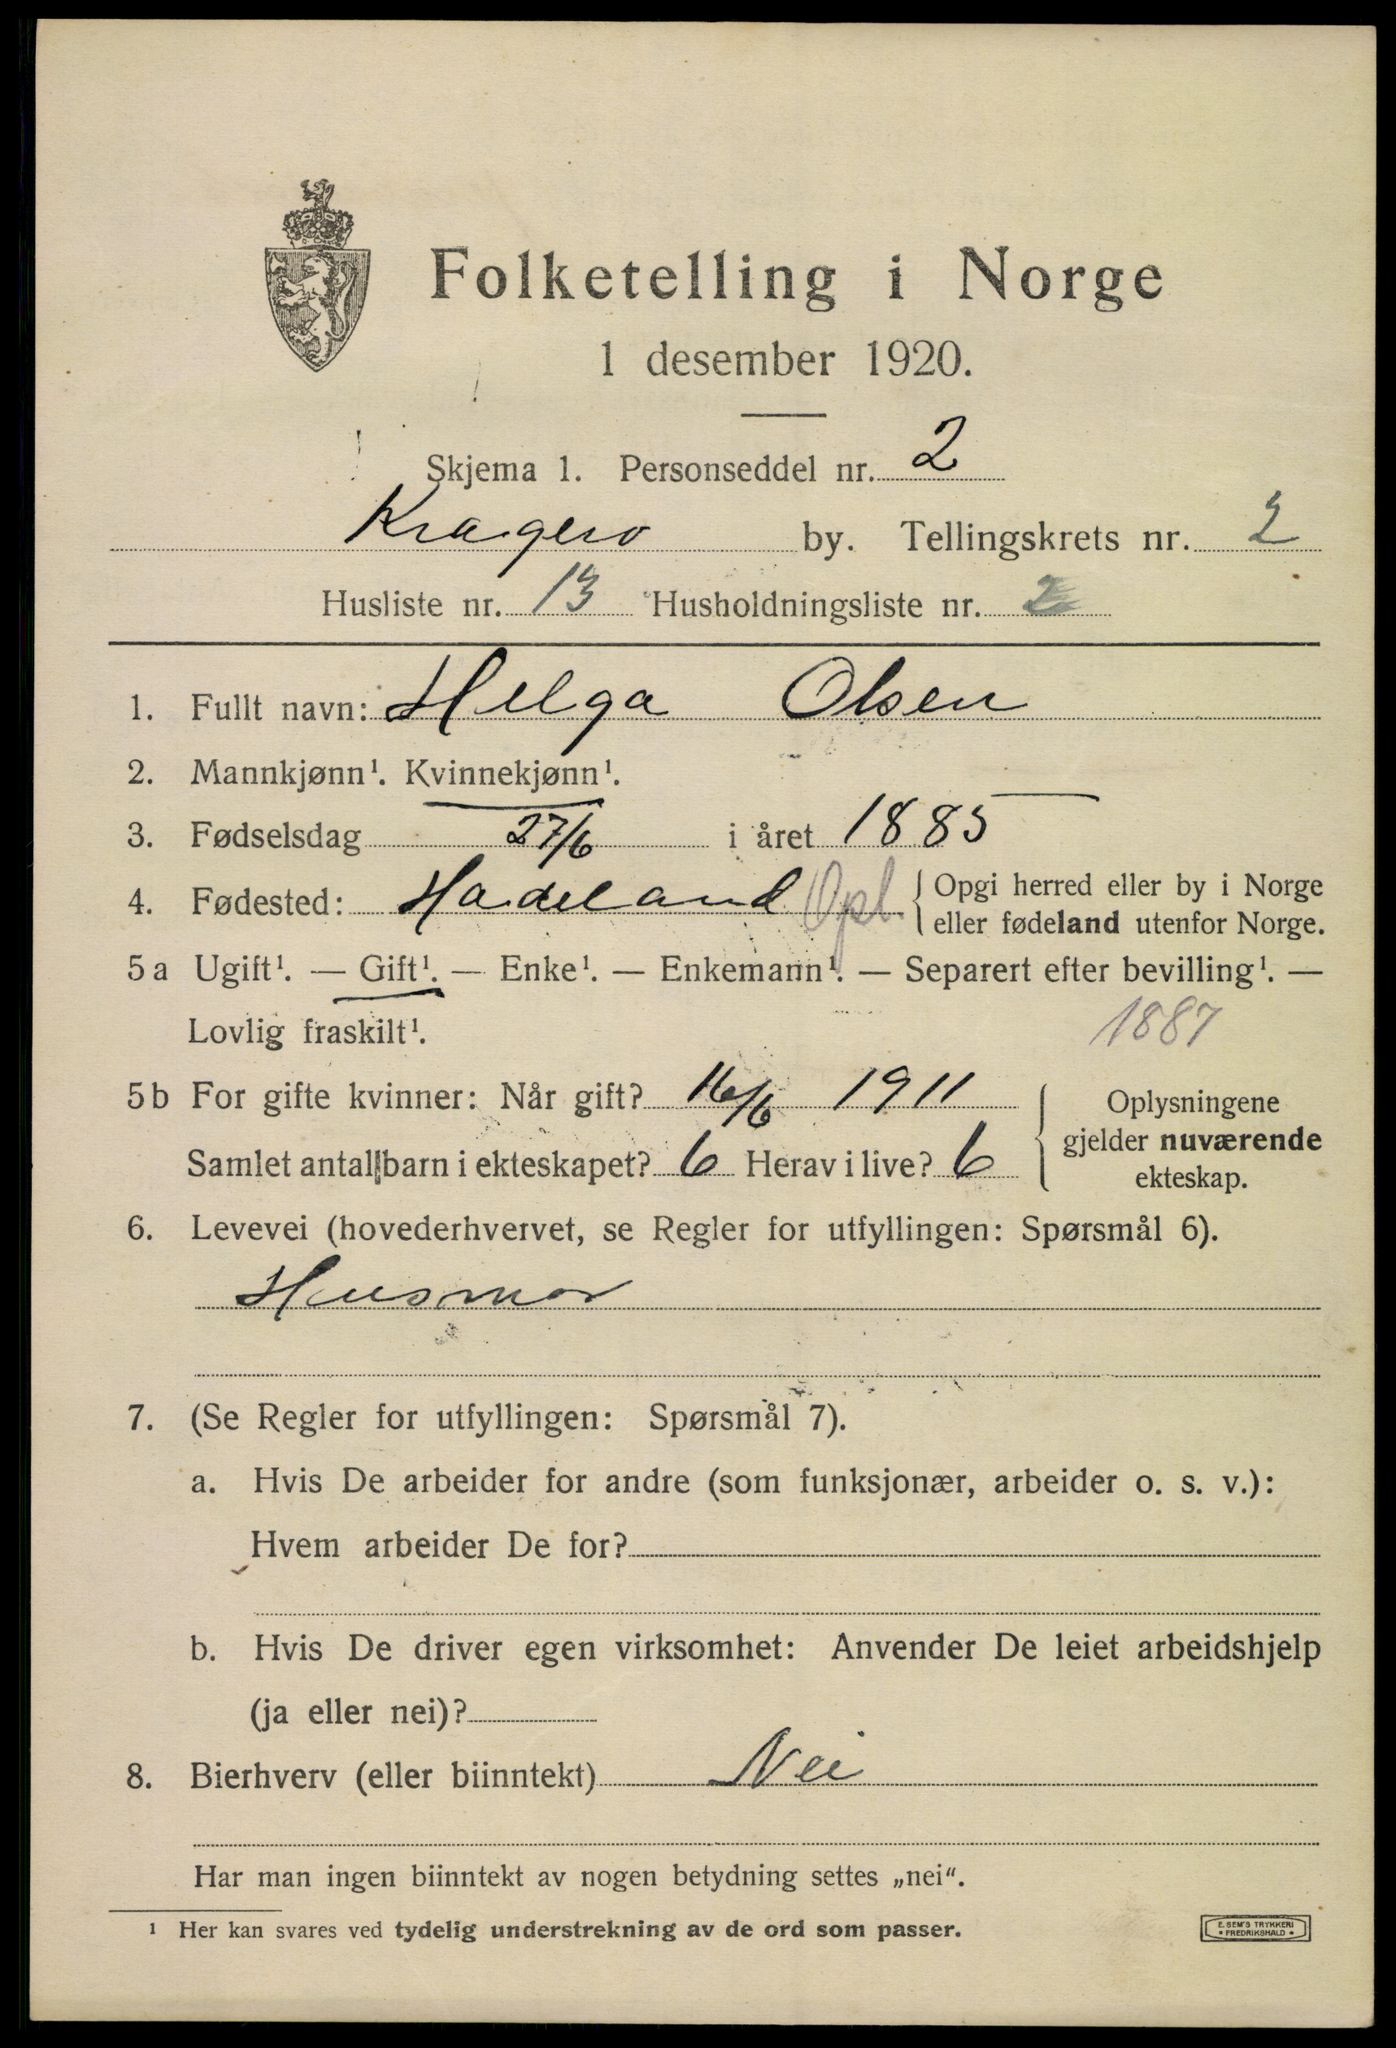 Folketelling i Norge
1 desember 1920.
Skjema 1. Personseddel nr. 2
Kragerø by. Tellingskrets nr. 2
Husliste nr. 13 Husholdningsliste nr. 2
1. Fullt navn: Helga Olsen
2. Mannkjønn¹. Kvinnekjønn¹.
3. Fødselsdag 27/6 i året 1885
4. Fødested: Hadeland Opl. { Opgi herred eller by i Norge
eller fødeland utenfor Norge.
5a Ugift¹. — Gift¹. — Enke¹. — Enkemann¹. — Separert efter bevilling¹. —
Lovlig fraskilt¹. 1887
5b For gifte kvinner: Når gift? 16/6 1911
Samlet antall barn i ekteskapet? 6 Herav i live? 6
Oplysningene
gjelder nuværende
ekteskap.
6. Levevei (hovederhvervet, se Regler for utfyllingen: Spørsmål 6).
Husmor
7. (Se Regler for utfyllingen: Spørsmål 7).
a. Hvis De arbeider for andre (som funksjonær, arbeider o. s. v.):
Hvem arbeider De for?
b. Hvis De driver egen virksomhet: Anvender De leiet arbeidshjelp
(ja eller nei)?
8. Bierhverv (eller biinntekt) Nei
Har man ingen biinntekt av nogen betydning settes „nei“.
¹ Her kan svares ved tydelig understrekning av de ord som passer.
E. SEM'S TRYKKERI
* FREDRIKSHALD *